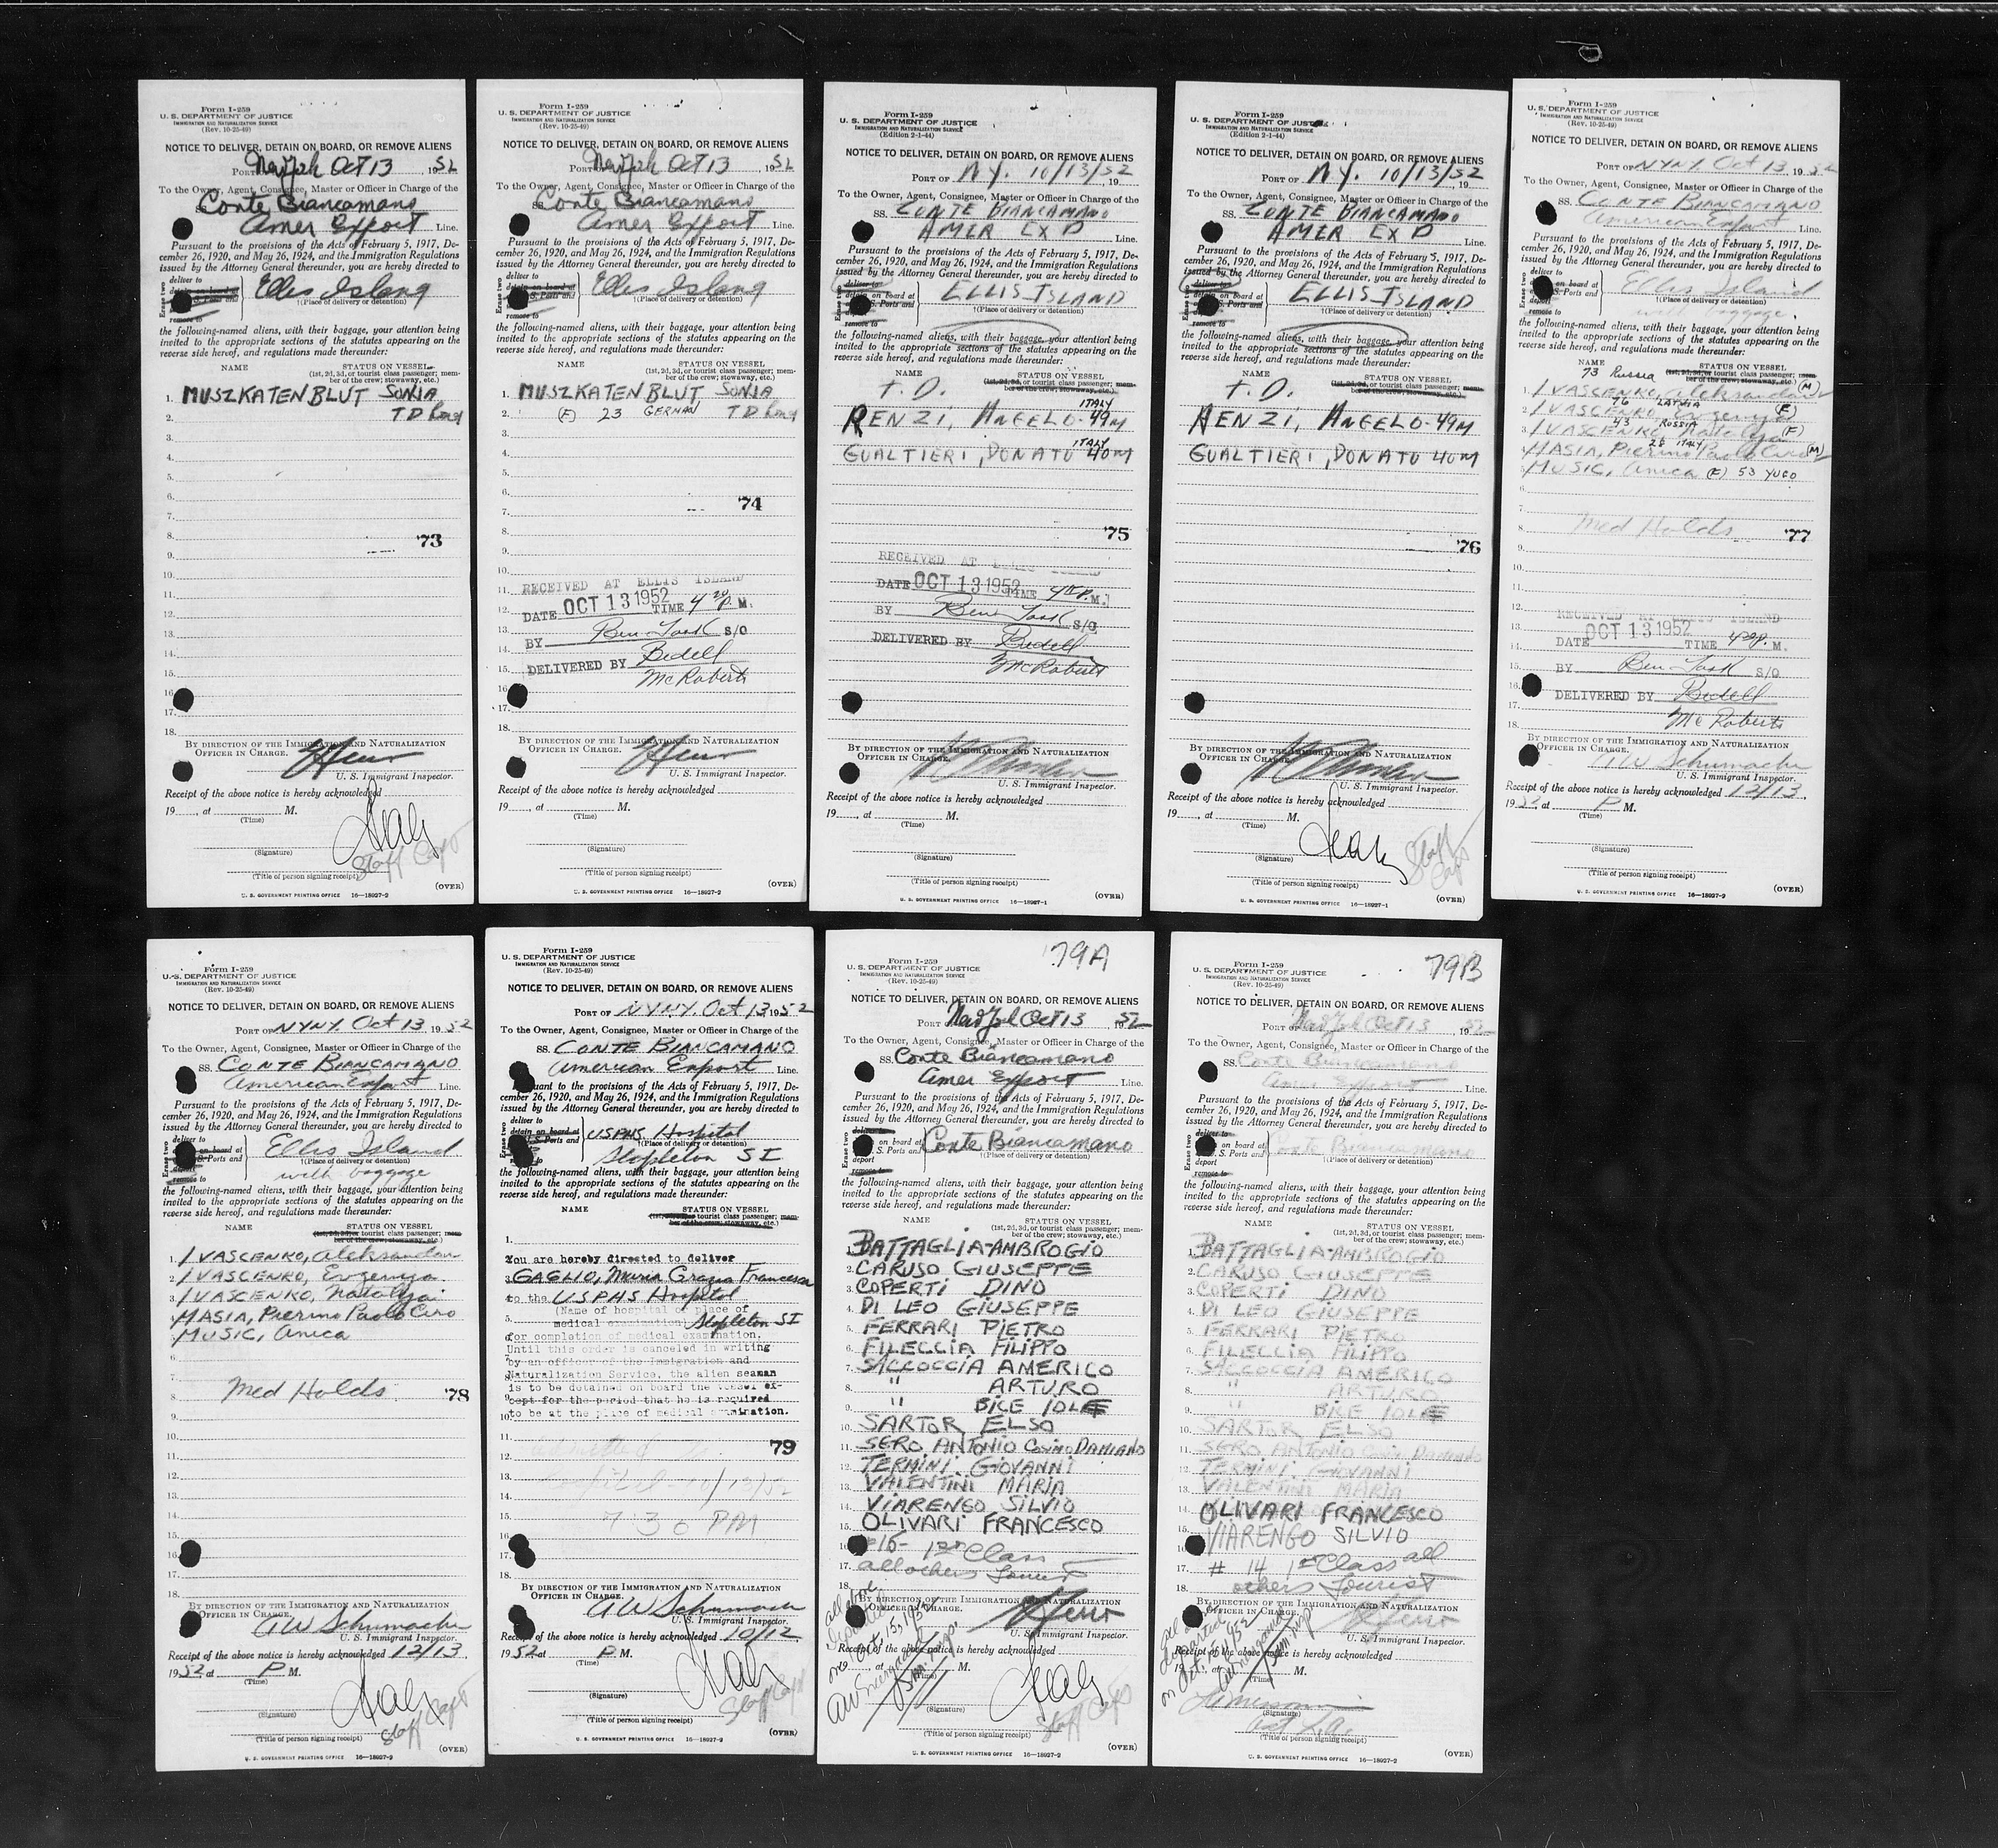 Form I-259
U. S. DEPARTMENT OF JUSTICE
IMMIGRATION AND NATURALIZATION SERVICE
(Rev. 10-25-49)
NOTICE TO DELIVER, DETAIN ON BOARD, OR REMOVE ALIENS
PORT Oct 13 1952
To the Owner, Agent, Consignee, Master or Officer in Charge of the
SS. Conte Biancamano
Amer Export Line.
Pursuant to the provisions of the Acts of February 5, 1917, De-
cember 26, 1920, and May 26, 1924, and the Immigration Regulations
issued by the Attorney General thereunder, you are hereby directed to
Erase two
deliver to
detain on board at
S. Ports and
remove to
Ellis Island
(Place of delivery or detention)
the following-named aliens, with their baggage, your attention being
invited to the appropriate sections of the statutes appearing on the
reverse side hereof, and regulations made thereunder:
NAME STATUS ON VESSEL
(1st, 2d, 3d, or tourist class passenger; mem-
ber of the crew; stowaway, etc.)
1. MUSZKATENBLUT SONJA
2. T D
3.
4.
5.
6.
7.
8. '73
9.
10.
11.
12.
13.
14.
15.
16.
17.
18.
BY DIRECTION OF THE IMMIGRATION AND NATURALIZATION
OFFICER IN CHARGE.
U. S. Immigrant Inspector.
Receipt of the above notice is hereby acknowledged
19 , at M.
(Time)
(Signature)
Staff Capt
(Title of person signing receipt)
(OVER)
U. S. GOVERNMENT PRINTING OFFICE 16—18927-2
Form I-259
U. S. DEPARTMENT OF JUSTICE
IMMIGRATION AND NATURALIZATION SERVICE
(Rev. 10-25-49)
NOTICE TO DELIVER, DETAIN ON BOARD, OR REMOVE ALIENS
PORT Oct 13 1952
To the Owner, Agent, Consignee, Master or Officer in Charge of the
SS. Conte Biancamano
Amer Export Line.
Pursuant to the provisions of the Acts of February 5, 1917, De-
cember 26, 1920, and May 26, 1924, and the Immigration Regulations
issued by the Attorney General thereunder, you are hereby directed to
Erase two
deliver to
detain on board at
S. Ports and
remove to
Ellis Island
(Place of delivery or detention)
the following-named aliens, with their baggage, your attention being
invited to the appropriate sections of the statutes appearing on the
reverse side hereof, and regulations made thereunder:
NAME STATUS ON VESSEL
(1st, 2d, 3d, or tourist class passenger; mem-
ber of the crew; stowaway, etc.)
1. MUSZKATENBLUT SONJA
2. (F) 23 GERMAN T D
3.
4.
5.
6. '74
7.
8.
9.
10.
11. RECEIVED AT ELLIS ISLAND
12. DATE OCT 13 1952 TIME 4 20 P. M.
13. BY Ben Task S/O
14.
15. DELIVERED BY Bedell
16. McRoberts
17.
18.
BY DIRECTION OF THE IMMIGRATION AND NATURALIZATION
OFFICER IN CHARGE.
U. S. Immigrant Inspector.
Receipt of the above notice is hereby acknowledged
19 , at M.
(Time)
(Signature)
(Title of person signing receipt)
(OVER)
U. S. GOVERNMENT PRINTING OFFICE 16—18927-2
Form I-259
U. S. DEPARTMENT OF JUSTICE
IMMIGRATION AND NATURALIZATION SERVICE
(Edition 2-1-44)
NOTICE TO DELIVER, DETAIN ON BOARD, OR REMOVE ALIENS
PORT OF N.Y. 10/13/52, 19
To the Owner, Agent, Consignee, Master or Officer in Charge of the
SS. CONTE BIANCAMANO
AMER EXP Line.
Pursuant to the provisions of the Acts of February 5, 1917, De-
cember 26, 1920, and May 26, 1924, and the Immigration Regulations
issued by the Attorney General thereunder, you are hereby directed to
Erase two
deliver to
on board at
S. Ports and
remove to
ELLIS ISLAND
(Place of delivery or detention)
the following-named aliens, with their baggage, your attention being
invited to the appropriate sections of the statutes appearing on the
reverse side hereof, and regulations made thereunder:
NAME STATUS ON VESSEL
(1st, 2d, 3d, or tourist class passenger; mem-
ber of the crew; stowaway, etc.)
T. D.
ITALY
RENZI, ANGELO-49M
ITALY
GUALTIERI, DONATO 40M
'75
RECEIVED AT ELLIS ISLAND
DATE OCT 13 1952 TIME P. M.
BY Ben Task S/O
DELIVERED BY Bedell
McRoberts
BY DIRECTION OF THE IMMIGRATION AND NATURALIZATION
OFFICER IN CHARGE.
U. S. Immigrant Inspector.
Receipt of the above notice is hereby acknowledged
19 , at M.
(Time)
(Signature)
(Title of person signing receipt)
(OVER)
U. S. GOVERNMENT PRINTING OFFICE 16—18927-1
Form I-259
U. S. DEPARTMENT OF JUSTICE
IMMIGRATION AND NATURALIZATION SERVICE
(Edition 2-1-44)
NOTICE TO DELIVER, DETAIN ON BOARD, OR REMOVE ALIENS
PORT OF N.Y. 10/13/52, 19
To the Owner, Agent, Consignee, Master or Officer in Charge of the
SS. CONTE BIANCAMANO
AMER EXP Line.
Pursuant to the provisions of the Acts of February 5, 1917, De-
cember 26, 1920, and May 26, 1924, and the Immigration Regulations
issued by the Attorney General thereunder, you are hereby directed to
Erase two
deliver to
on board at
S. Ports and
remove to
ELLIS ISLAND
(Place of delivery or detention)
the following-named aliens, with their baggage, your attention being
invited to the appropriate sections of the statutes appearing on the
reverse side hereof, and regulations made thereunder:
NAME STATUS ON VESSEL
(1st, 2d, 3d, or tourist class passenger; mem-
ber of the crew; stowaway, etc.)
T. D.
RENZI, ANGELO-49M
GUALTIERI, DONATO 40M
'76
BY DIRECTION OF THE IMMIGRATION AND NATURALIZATION
OFFICER IN CHARGE.
U. S. Immigrant Inspector.
Receipt of the above notice is hereby acknowledged
19 , at M.
(Time)
(Signature)
Staff Capt
(Title of person signing receipt)
(OVER)
U. S. GOVERNMENT PRINTING OFFICE 16—18927-1
Form I-259
U. S. DEPARTMENT OF JUSTICE
IMMIGRATION AND NATURALIZATION SERVICE
(Rev. 10-25-49)
NOTICE TO DELIVER, DETAIN ON BOARD, OR REMOVE ALIENS
PORT OF NYNY. Oct 13, 1952
To the Owner, Agent, Consignee, Master or Officer in Charge of the
SS. CONTE BIANCAMANO
American Export Line.
Pursuant to the provisions of the Acts of February 5, 1917, De-
cember 26, 1920, and May 26, 1924, and the Immigration Regulations
issued by the Attorney General thereunder, you are hereby directed to
Erase two
deliver to
on board at
S. Ports and
deport
remove to
Ellis Island
(Place of delivery or detention)
with baggage.
the following-named aliens, with their baggage, your attention being
invited to the appropriate sections of the statutes appearing on the
reverse side hereof, and regulations made thereunder:
NAME STATUS ON VESSEL
(1st, 2d, 3d, or tourist class passenger; mem-
ber of the crew; stowaway, etc.)
73 Russia (M)
1. IVASCENKO, Aleksandar
76 LATVIA (F)
2. IVASCENKO, Evgenyia
43 RUSSIA (F)
3. IVASCENKO, Natalya
28 ITALY (M)
4. MASIA, Pierino Paolo Ciro
5. MUSIC, Anica (F) 53 YUGO
6.
7.
8. Med Holds '77
9.
10.
11.
12. RECEIVED AT ELLIS ISLAND
13. OCT 13 1952
14. DATE TIME 420 P. M.
15. BY Ben Task S/O
16. DELIVERED BY Bedell
17. Mc Roberts
18.
BY DIRECTION OF THE IMMIGRATION AND NATURALIZATION
OFFICER IN CHARGE.
AW Schumacher
U. S. Immigrant Inspector.
Receipt of the above notice is hereby acknowledged 12/13,
1952 at P M.
(Time)
(Signature)
(Title of person signing receipt)
(OVER)
U. S. GOVERNMENT PRINTING OFFICE 16—18927-2
Form I-259
U. S. DEPARTMENT OF JUSTICE
IMMIGRATION AND NATURALIZATION SERVICE
(Rev. 10-25-49)
NOTICE TO DELIVER, DETAIN ON BOARD, OR REMOVE ALIENS
PORT OF NYNY. Oct 13, 1952
To the Owner, Agent, Consignee, Master or Officer in Charge of the
SS. CONTE BIANCAMANO
American Export Line.
Pursuant to the provisions of the Acts of February 5, 1917, De-
cember 26, 1920, and May 26, 1924, and the Immigration Regulations
issued by the Attorney General thereunder, you are hereby directed to
Erase two
deliver to
on board at
S. Ports and
deport
remove to
Ellis Island
(Place of delivery or detention)
with baggage
the following-named aliens, with their baggage, your attention being
invited to the appropriate sections of the statutes appearing on the
reverse side hereof, and regulations made thereunder:
NAME STATUS ON VESSEL
(1st, 2d, 3d, or tourist class passenger; mem-
ber of the crew; stowaway, etc.)
1. IVASCENKO, Aleksandar
2. IVASCENKO, Evgenyia
3. IVASCENKO, Natalya
MASIA, Pierino Paolo Ciro
MUSIC, Anica
6.
7.
8. Med Holds '78
9.
10.
11.
12.
13.
14.
15.
16.
17.
18.
BY DIRECTION OF THE IMMIGRATION AND NATURALIZATION
OFFICER IN CHARGE.
AW Schumacher
U. S. Immigrant Inspector.
Receipt of the above notice is hereby acknowledged 12/13
1952 at P M.
(Time)
(Signature)
Staff Capt
(Title of person signing receipt)
(OVER)
U. S. GOVERNMENT PRINTING OFFICE 16—18927-2
Form I-259
U. S. DEPARTMENT OF JUSTICE
IMMIGRATION AND NATURALIZATION SERVICE
(Rev. 10-25-49)
NOTICE TO DELIVER, DETAIN ON BOARD, OR REMOVE ALIENS
PORT OF NYNY. Oct 13, 1952
To the Owner, Agent, Consignee, Master or Officer in Charge of the
SS. CONTE BIANCAMANO
American Export Line.
Pursuant to the provisions of the Acts of February 5, 1917, De-
cember 26, 1920, and May 26, 1924, and the Immigration Regulations
issued by the Attorney General thereunder, you are hereby directed to
Erase two
deliver to
detain on board at
S. Ports and
USPHS Hospital
(Place of delivery or detention)
Stapleton SI
the following-named aliens, with their baggage, your attention being
invited to the appropriate sections of the statutes appearing on the
reverse side hereof, and regulations made thereunder:
NAME STATUS ON VESSEL
(1st, 2d, 3d, or tourist class passenger; mem-
ber of the crew; stowaway, etc.)
1.
You are hereby directed to deliver
3. GAGLIO, Maria Grazia Francesca
to the USPHS Hospital
(Name of hospital or place of
5. medical examination) Stapleton SI
for completion of medical examination.
Until this order is canceled in writing
by an officer of the Immigration and
Naturalization Service, the alien seaman
is to be detained on board the vessel ex-
cept for the period that he is required
to be at the place of medical examination.
11. '79
12.
13. 10/13/52
14.
15. 7 30 PM
16.
17.
18.
BY DIRECTION OF THE IMMIGRATION AND NATURALIZATION
OFFICER IN CHARGE.
AW Schumacher
U. S. Immigrant Inspector.
Receipt of the above notice is hereby acknowledged 10/12,
1952 at P M.
(Time)
(Signature)
Staff Capt
(Title of person signing receipt)
(OVER)
U. S. GOVERNMENT PRINTING OFFICE 16—18927-2
'79A
Form I-259
U. S. DEPARTMENT OF JUSTICE
IMMIGRATION AND NATURALIZATION SERVICE
(Rev. 10-25-49)
NOTICE TO DELIVER, DETAIN ON BOARD, OR REMOVE ALIENS
PORT Oct 13 1952
To the Owner, Agent, Consignee, Master or Officer in Charge of the
SS. Conte Biancamano
Amer Export Line.
Pursuant to the provisions of the Acts of February 5, 1917, De-
cember 26, 1920, and May 26, 1924, and the Immigration Regulations
issued by the Attorney General thereunder, you are hereby directed to
Erase two
deliver to
on board at
S. Ports and
deport
remove to
Conte Biancamano
(Place of delivery or detention)
the following-named aliens, with their baggage, your attention being
invited to the appropriate sections of the statutes appearing on the
reverse side hereof, and regulations made thereunder:
NAME STATUS ON VESSEL
(1st, 2d, 3d, or tourist class passenger; mem-
ber of the crew; stowaway, etc.)
1. BATTAGLIA-AMBROGIO
2. CARUSO GIUSEPPE
3. COPERTI DINO
4. DI LEO GIUSEPPE
5. FERRARI PIETRO
6. FILECCIA FILIPPO
7. SACCOCCIA AMERICO
8. " ARTURO
9. " BICE IOLE
10. SARTOR ELSO
11. SERO ANTONIO Cosimo DAMIANO
12. TERMINI GIOVANNI
13. VALENTINI MARIA
14. VIARENGO SILVIO
15. OLIVARI FRANCESCO
16. #15- 1st Class
17. all others Tourist
18.
all above
departed
on Oct. 15, 1952
BY DIRECTION OF THE IMMIGRATION AND NATURALIZATION
OFFICER IN CHARGE.
U. S. Immigrant Inspector.
Receipt of the above notice is hereby acknowledged
19 , at M.
(Signature)
Staff Capt
(Title of person signing receipt)
(OVER)
U. S. GOVERNMENT PRINTING OFFICE 16—18927-2
79B
Form I-259
U. S. DEPARTMENT OF JUSTICE
IMMIGRATION AND NATURALIZATION SERVICE
(Rev. 10-25-49)
NOTICE TO DELIVER, DETAIN ON BOARD, OR REMOVE ALIENS
PORT OF Oct 13 1952
To the Owner, Agent, Consignee, Master or Officer in Charge of the
SS. Conte Biancamano
Amer Export Line.
Pursuant to the provisions of the Acts of February 5, 1917, De-
cember 26, 1920, and May 26, 1924, and the Immigration Regulations
issued by the Attorney General thereunder, you are hereby directed to
Erase two
deliver to
on board at
S. Ports and
deport
remove to
Conte Biancamano
(Place of delivery or detention)
the following-named aliens, with their baggage, your attention being
invited to the appropriate sections of the statutes appearing on the
reverse side hereof, and regulations made thereunder:
NAME STATUS ON VESSEL
(1st, 2d, 3d, or tourist class passenger; mem-
ber of the crew; stowaway, etc.)
1. BATTAGLIA-AMBROGIO
2. CARUSO GIUSEPPE
3. COPERTI DINO
4. DI LEO GIUSEPPE
5. FERRARI PIETRO
6. FILECCIA FILIPPO
7. SACCOCCIA AMERICO
8. " ARTURO
9. " BICE IOLE
10. SARTOR ELSO
11. SERO ANTONIO Cosimo DAMIANO
12. TERMINI GIOVANNI
13. VALENTINI MARIA
14. OLIVARI FRANCESCO
15. VIARENGO SILVIO
17. # 14 1st Class all
18. others Tourist
departed
on Oct. 15, 1952
BY DIRECTION OF THE IMMIGRATION AND NATURALIZATION
OFFICER IN CHARGE.
U. S. Immigrant Inspector.
Receipt of the above notice is hereby acknowledged
19 , at M.
(Time)
(Signature)
(Title of person signing receipt)
(OVER)
U. S. GOVERNMENT PRINTING OFFICE 16—18927-2